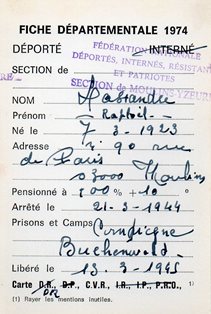 FICHE DÉPARTEMENTALE 1974
DÉPORTÉ INTERNÉ
FÉDÉRATION NATIONALE
DÉPORTÉS, INTERNÉS, RÉSISTANTS
ET PATRIOTES
SECTION de MOULINS-YZEURE
NOM
Prénom
Né le 7-3-1923
Adresse 90 rue
de Paris
03000 Moulins
Pensionné à 100% +10°
Arrêté le 21-3-1944
Prisons et Camps Compiègne
Buchenwald
Libéré le 13-3-1945
Carte D.R., D.P., C.V.R., I.R., I.P., P.R.O., 1)
(1) Rayer les mentions inutiles.